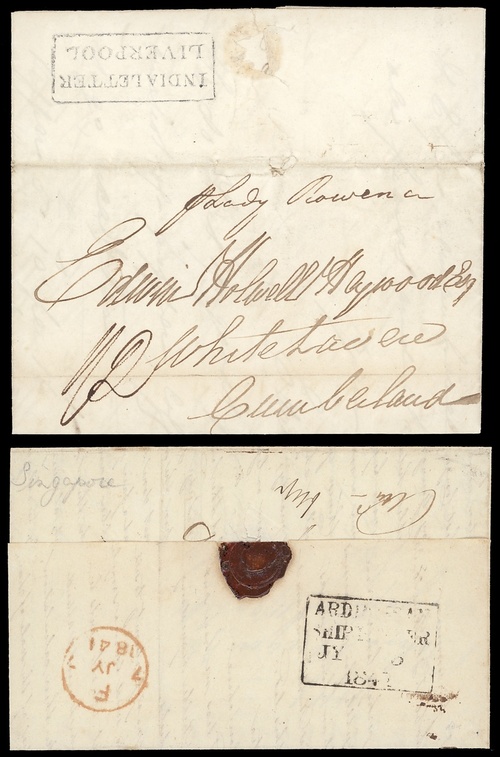 INDIA LETTER
LIVERPOOL
p Lady Rowena
Edwin Holwell Heywood Esq
1/2 Whitehaven
Cumberland
Singapore
SHIP LETTER
JY
184
F
7 JY 7
1841